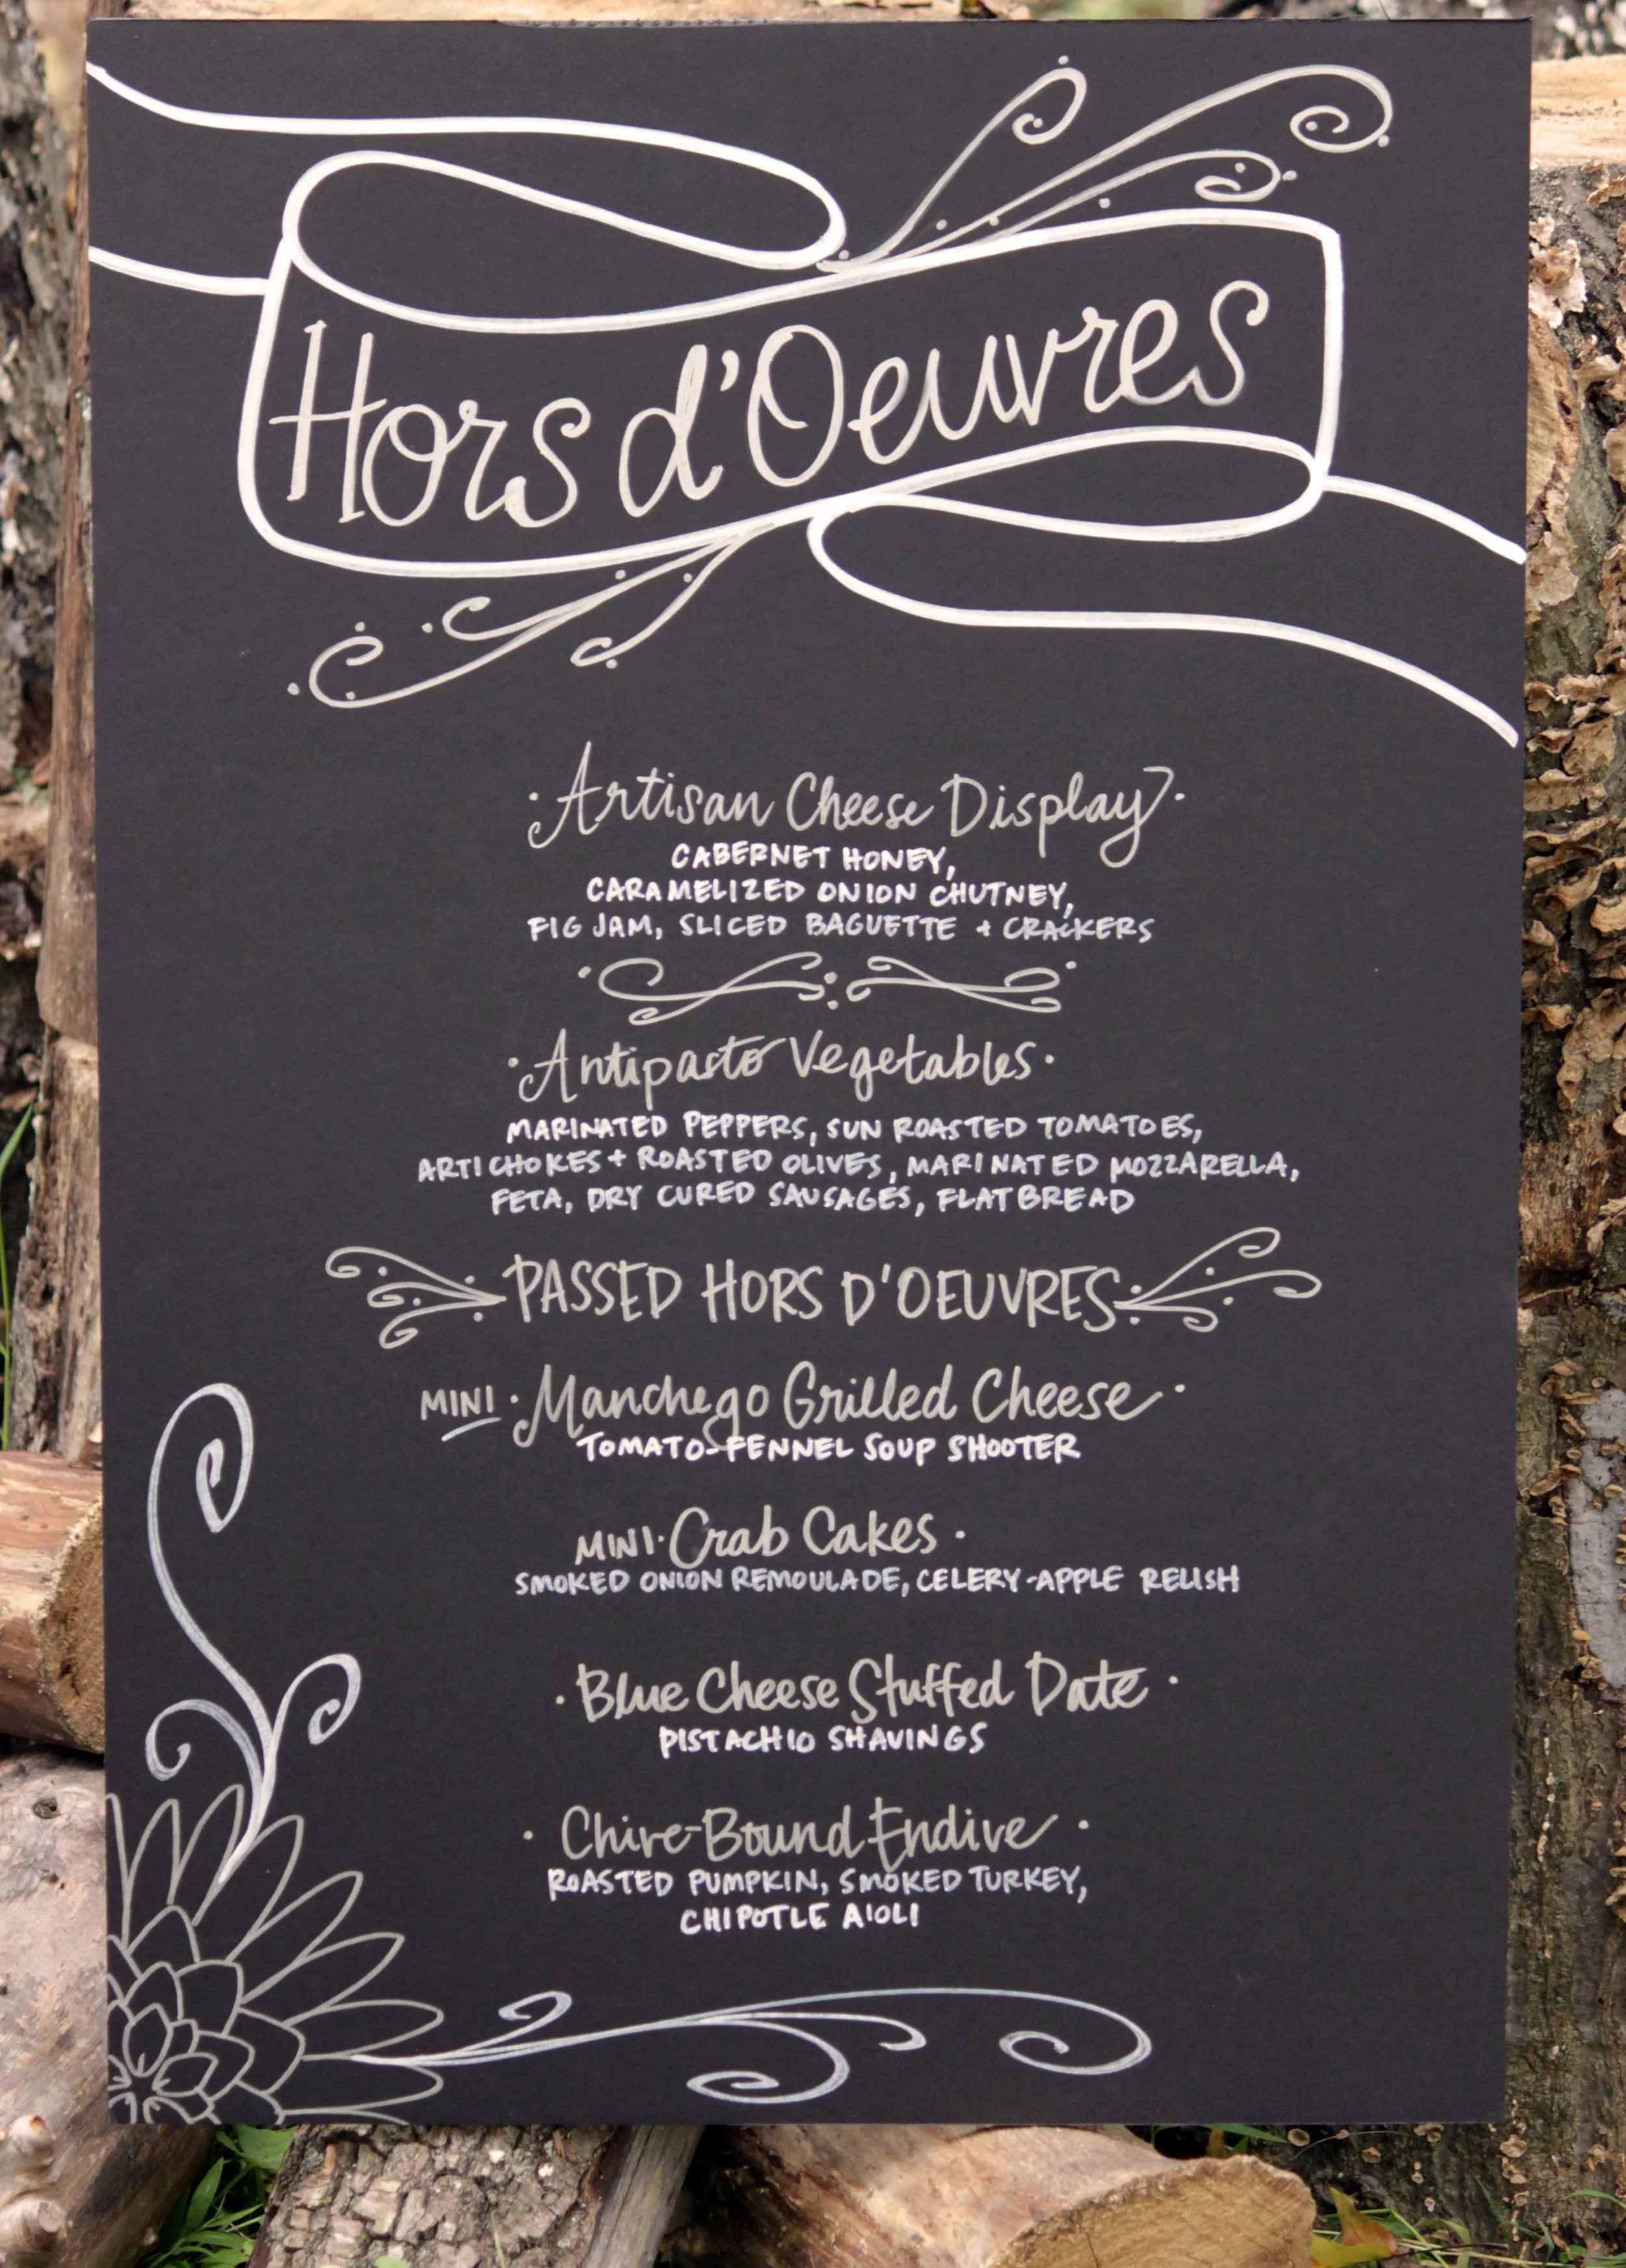 Hors d'Oeuvres
·Artisan Cheese Display·
CABERNET HONEY,
CARAMELIZED ONION CHUTNEY,
FIG JAM, SLICED BAGUETTE + CRACKERS
·Antipasto Vegetables·
MARINATED PEPPERS, SUN ROASTED TOMATOES,
ARTICHOKES + ROASTED OLIVES, MARINATED MOZZARELLA,
FETA, DRY CURED SAUSAGES, FLATBREAD
PASSED HORS D'OEUVRES
MINI ·Manchego Grilled Cheese·
TOMATO-FENNEL SOUP SHOOTER
MINI·Crab Cakes·
SMOKED ONION REMOULADE, CELERY-APPLE RELISH
·Blue Cheese Stuffed Date·
PISTACHIO SHAVINGS
·Chive-Bound Endive·
ROASTED PUMPKIN, SMOKED TURKEY,
CHIPOTLE AIOLI